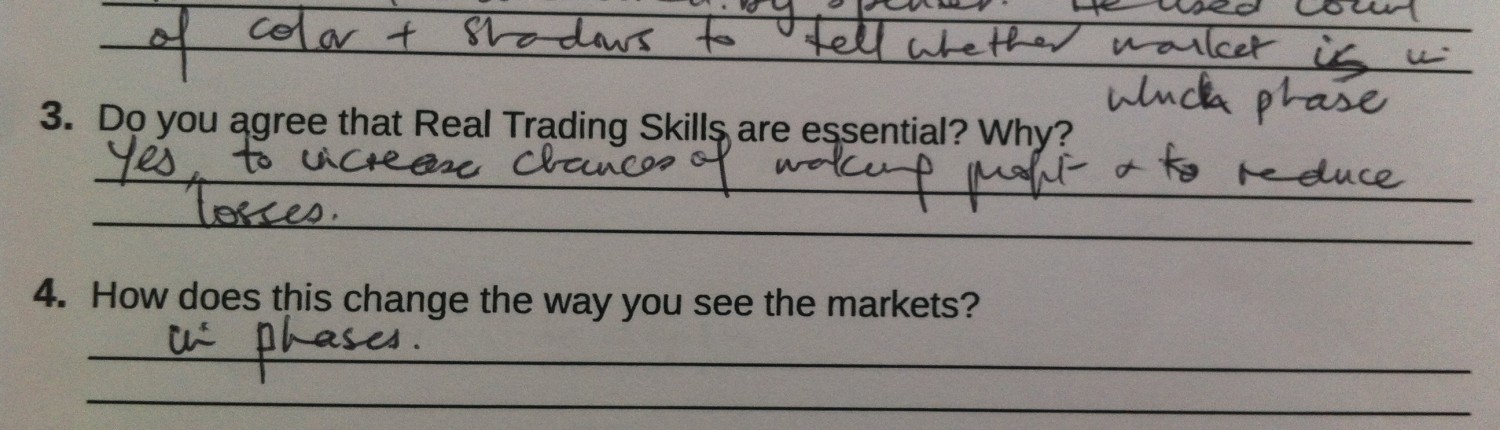 by speaker. He used count
of color + shadows to tell whether market is in
which phase
3. Do you agree that Real Trading Skills are essential? Why?
Yes, to increase chances of making profit & to reduce
losses.
4. How does this change the way you see the markets?
in phases.